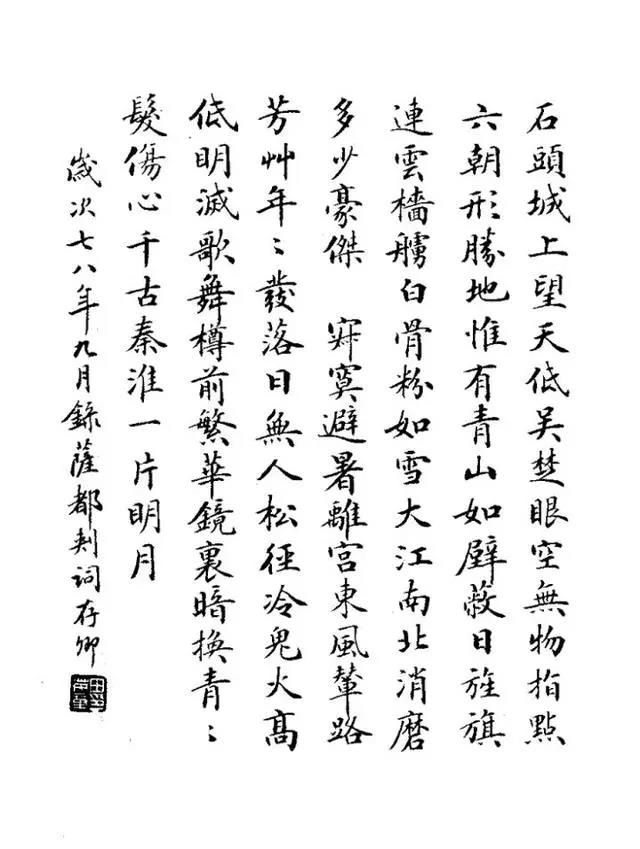 石頭城上望天低吳楚眼空無物指點
六朝形勝地惟有青山如壁蔽日旌旗
連雲檣艣白骨粉如雪大江南北消磨
多少豪傑　寂寞避暑離宮東風輦路
芳艸年〻發落日無人松徑冷鬼火高
低明滅歌舞樽前繁華鏡裏暗換青〻
髮傷心千古秦淮一片明月
歲次七八年九月錄薩都剌詞存卿